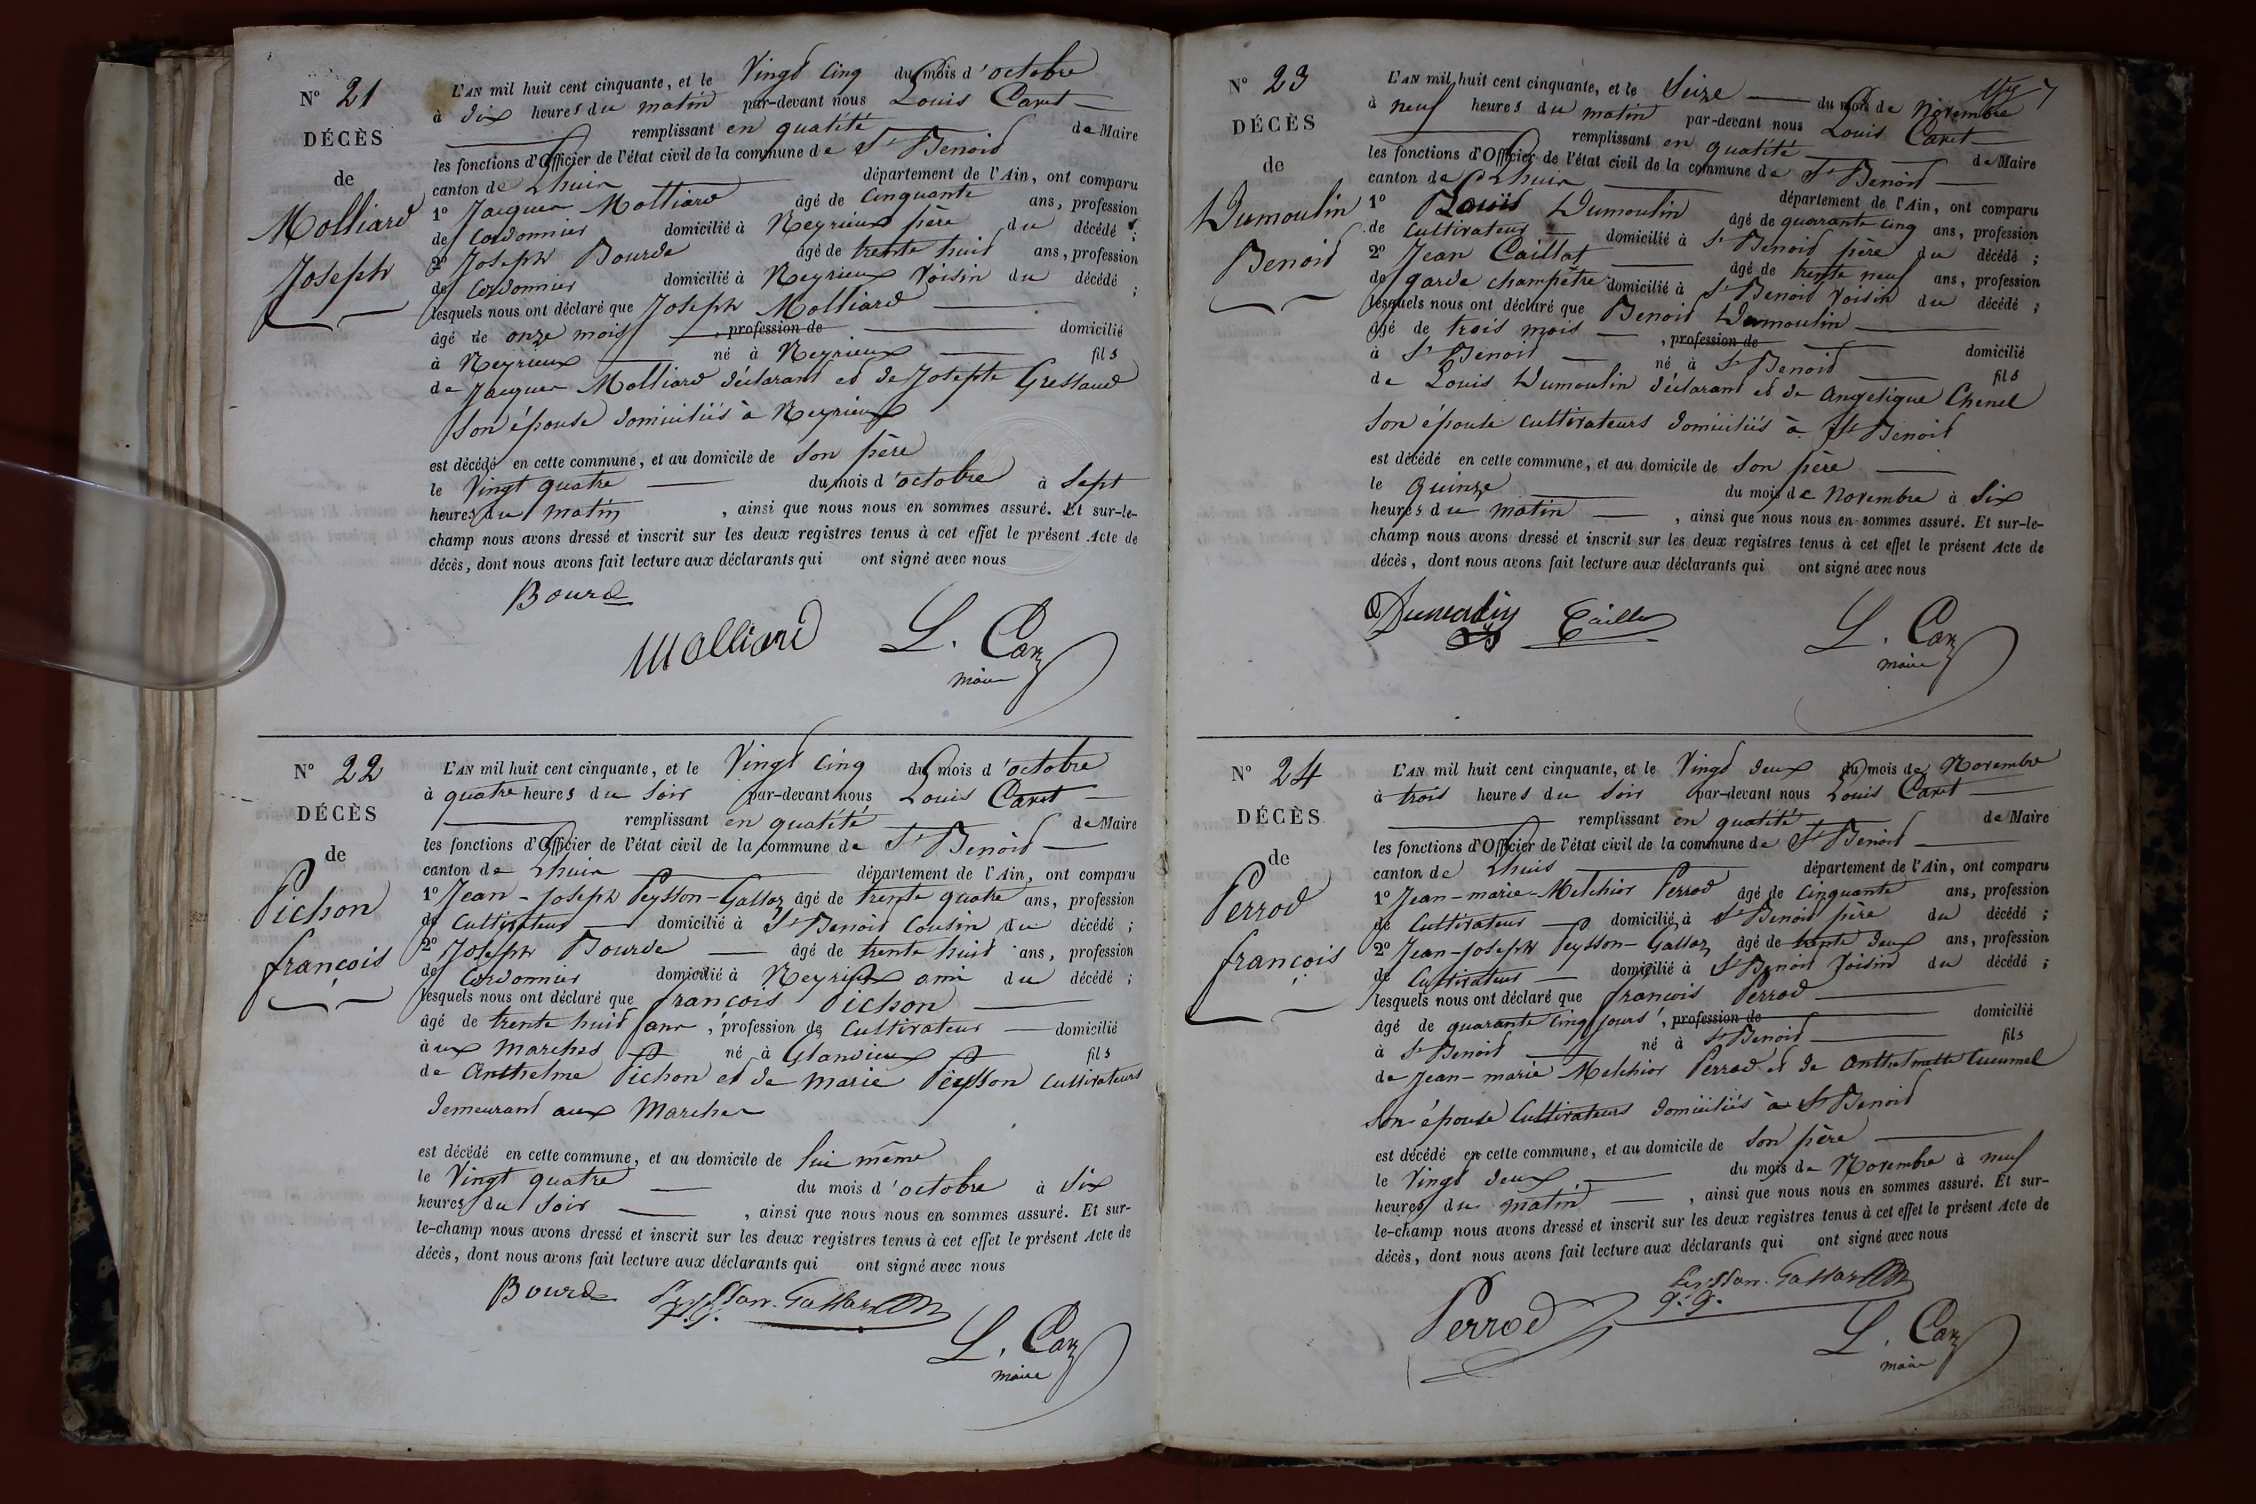 N° 21
DÉCÈS
de
Molliard
Joseph
L'AN mil huit cent cinquante, et le Vingt cinq du mois d'octobre
à dix heures du matin par-devant nous Louis Caret
remplissant en qualité de Maire
les fonctions d'Officier de l'état civil de la commune de St Benoit
canton de Lhuis département de l'Ain, ont comparu
1° Jacques Molliard âgé de Cinquante ans, profession
de Cordonnier domicilié à Neyrieux père du décédé ;
2° Joseph Bourde âgé de trente huit ans, profession
de Cordonnier domicilié à Neyrieux Voisin du décédé ;
lesquels nous ont déclaré que Joseph Molliard
âgé de onze mois , profession de domicilié
à Neyrieux né à Neyrieux fils
de Jacques Molliard déclarant et de Josephte Gressaud
Son épouse domiciliés à Neyrieux
est décédé en cette commune, et au domicile de Son père
le Vingt quatre du mois d'octobre à Sept
heures du matin , ainsi que nous nous en sommes assuré. Et sur-le-
champ nous avons dressé et inscrit sur les deux registres tenus à cet effet le présent Acte de
décès, dont nous avons fait lecture aux déclarants qui ont signé avec nous
Bourde
Molliard L. Car
maire
N° 22
DÉCÈS
de
Pichon
françois
L'AN mil huit cent cinquante, et le Vingt cinq du mois d'octobre
à quatre heures du Soir par-devant nous Louis Caret
remplissant en qualité de Maire
les fonctions d'Officier de l'état civil de la commune de St Benoit
canton de Lhuis département de l'Ain, ont comparu
1° Jean-Joseph Peysson-Galloz âgé de trente quatre ans, profession
de Cultivateur domicilié à St Benoit Cousin du décédé ;
2° Joseph Bourde âgé de trente huit ans, profession
de Cordonnier domicilié à Neyrieux ami du décédé ;
lesquels nous ont déclaré que françois Pichon
âgé de trente huit ans , profession de Cultivateur domicilié
aux Marches né à Glandieux fils
de Anthelme Pichon et de Marie Peysson Cultivateurs
demeurant aux Marches
est décédé en cette commune, et au domicile de lui même
le Vingt quatre du mois d'octobre à Six
heures du Soir , ainsi que nous nous en sommes assuré. Et sur-
le-champ nous avons dressé et inscrit sur les deux registres tenus à cet effet le présent Acte de
décès, dont nous avons fait lecture aux déclarants qui ont signé avec nous
Bourde Peysson-Galloz
L. Car
maire
N° 23
DÉCÈS
de
Dumoulin
Benoit
7
L'AN mil huit cent cinquante, et le Seize du mois de Novembre
à neuf heures du matin par-devant nous Louis Caret
remplissant en qualité de Maire
les fonctions d'Officier de l'état civil de la commune de St Benoit
canton de Lhuis département de l'Ain, ont comparu
1° Louis Dumoulin âgé de quarante cinq ans, profession
de Cultivateur domicilié à St Benoit père du décédé ;
2° Jean Caillat âgé de trente neuf ans, profession
de garde champêtre domicilié à St Benoit Voisin du décédé ;
lesquels nous ont déclaré que Benoit Dumoulin
âgé de trois mois , profession de domicilié
à St Benoit né à St Benoit fils
de Louis Dumoulin déclarant et de Angélique Chenel
Son épouse Cultivateurs domiciliés à St Benoit
est décédé en cette commune, et au domicile de Son père
le quinze du mois de Novembre à Six
heures du matin , ainsi que nous nous en sommes assuré. Et sur-le-
champ nous avons dressé et inscrit sur les deux registres tenus à cet effet le présent Acte de
décès, dont nous avons fait lecture aux déclarants qui ont signé avec nous
Dumoulin Cailla L. Car
maire
N° 24
DÉCÈS
de
Perrod
françois
L'AN mil huit cent cinquante, et le Vingt deux du mois de Novembre
à trois heures du Soir par-devant nous Louis Caret
remplissant en qualité de Maire
les fonctions d'Officier de l'état civil de la commune de St Benoit
canton de Lhuis département de l'Ain, ont comparu
1° Jean-marie-Melchior Perrod âgé de Cinquante ans, profession
de Cultivateur domicilié à St Benoit père du décédé ;
2° Jean-Joseph Peysson-Galloz âgé de trente deux ans, profession
de Cultivateur domicilié à St Benoit Voisin du décédé ;
lesquels nous ont déclaré que françois Perrod
âgé de quarante Cinq Jours , profession de domicilié
à St Benoit né à St Benoit fils
de Jean-marie Melchior Perrod et de
Son épouse Cultivateurs domiciliés à St Benoit
est décédé en cette commune, et au domicile de Son père
le Vingt deux du mois de Novembre à neuf
heures du matin , ainsi que nous nous en sommes assuré. Et sur-
le-champ nous avons dressé et inscrit sur les deux registres tenus à cet effet le présent Acte de
décès, dont nous avons fait lecture aux déclarants qui ont signé avec nous
Peysson-Galloz
Perrod L. Car
maire